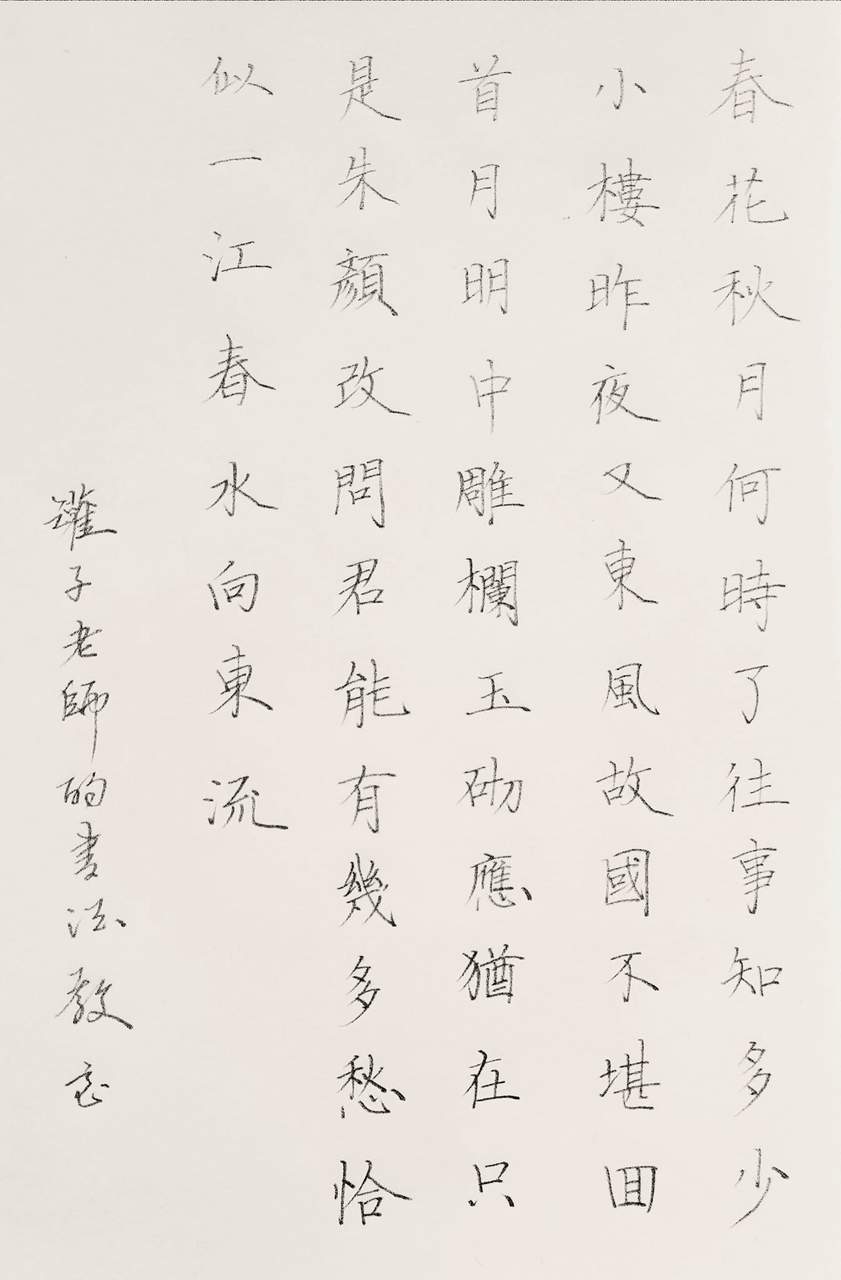 春花秋月何時了往事知多少
小樓昨夜又東風故國不堪囬
首月明中雕欄玉砌應猶在只
是朱顏改問君能有幾多愁恰
似一江春水向東流
子老師的書法教室